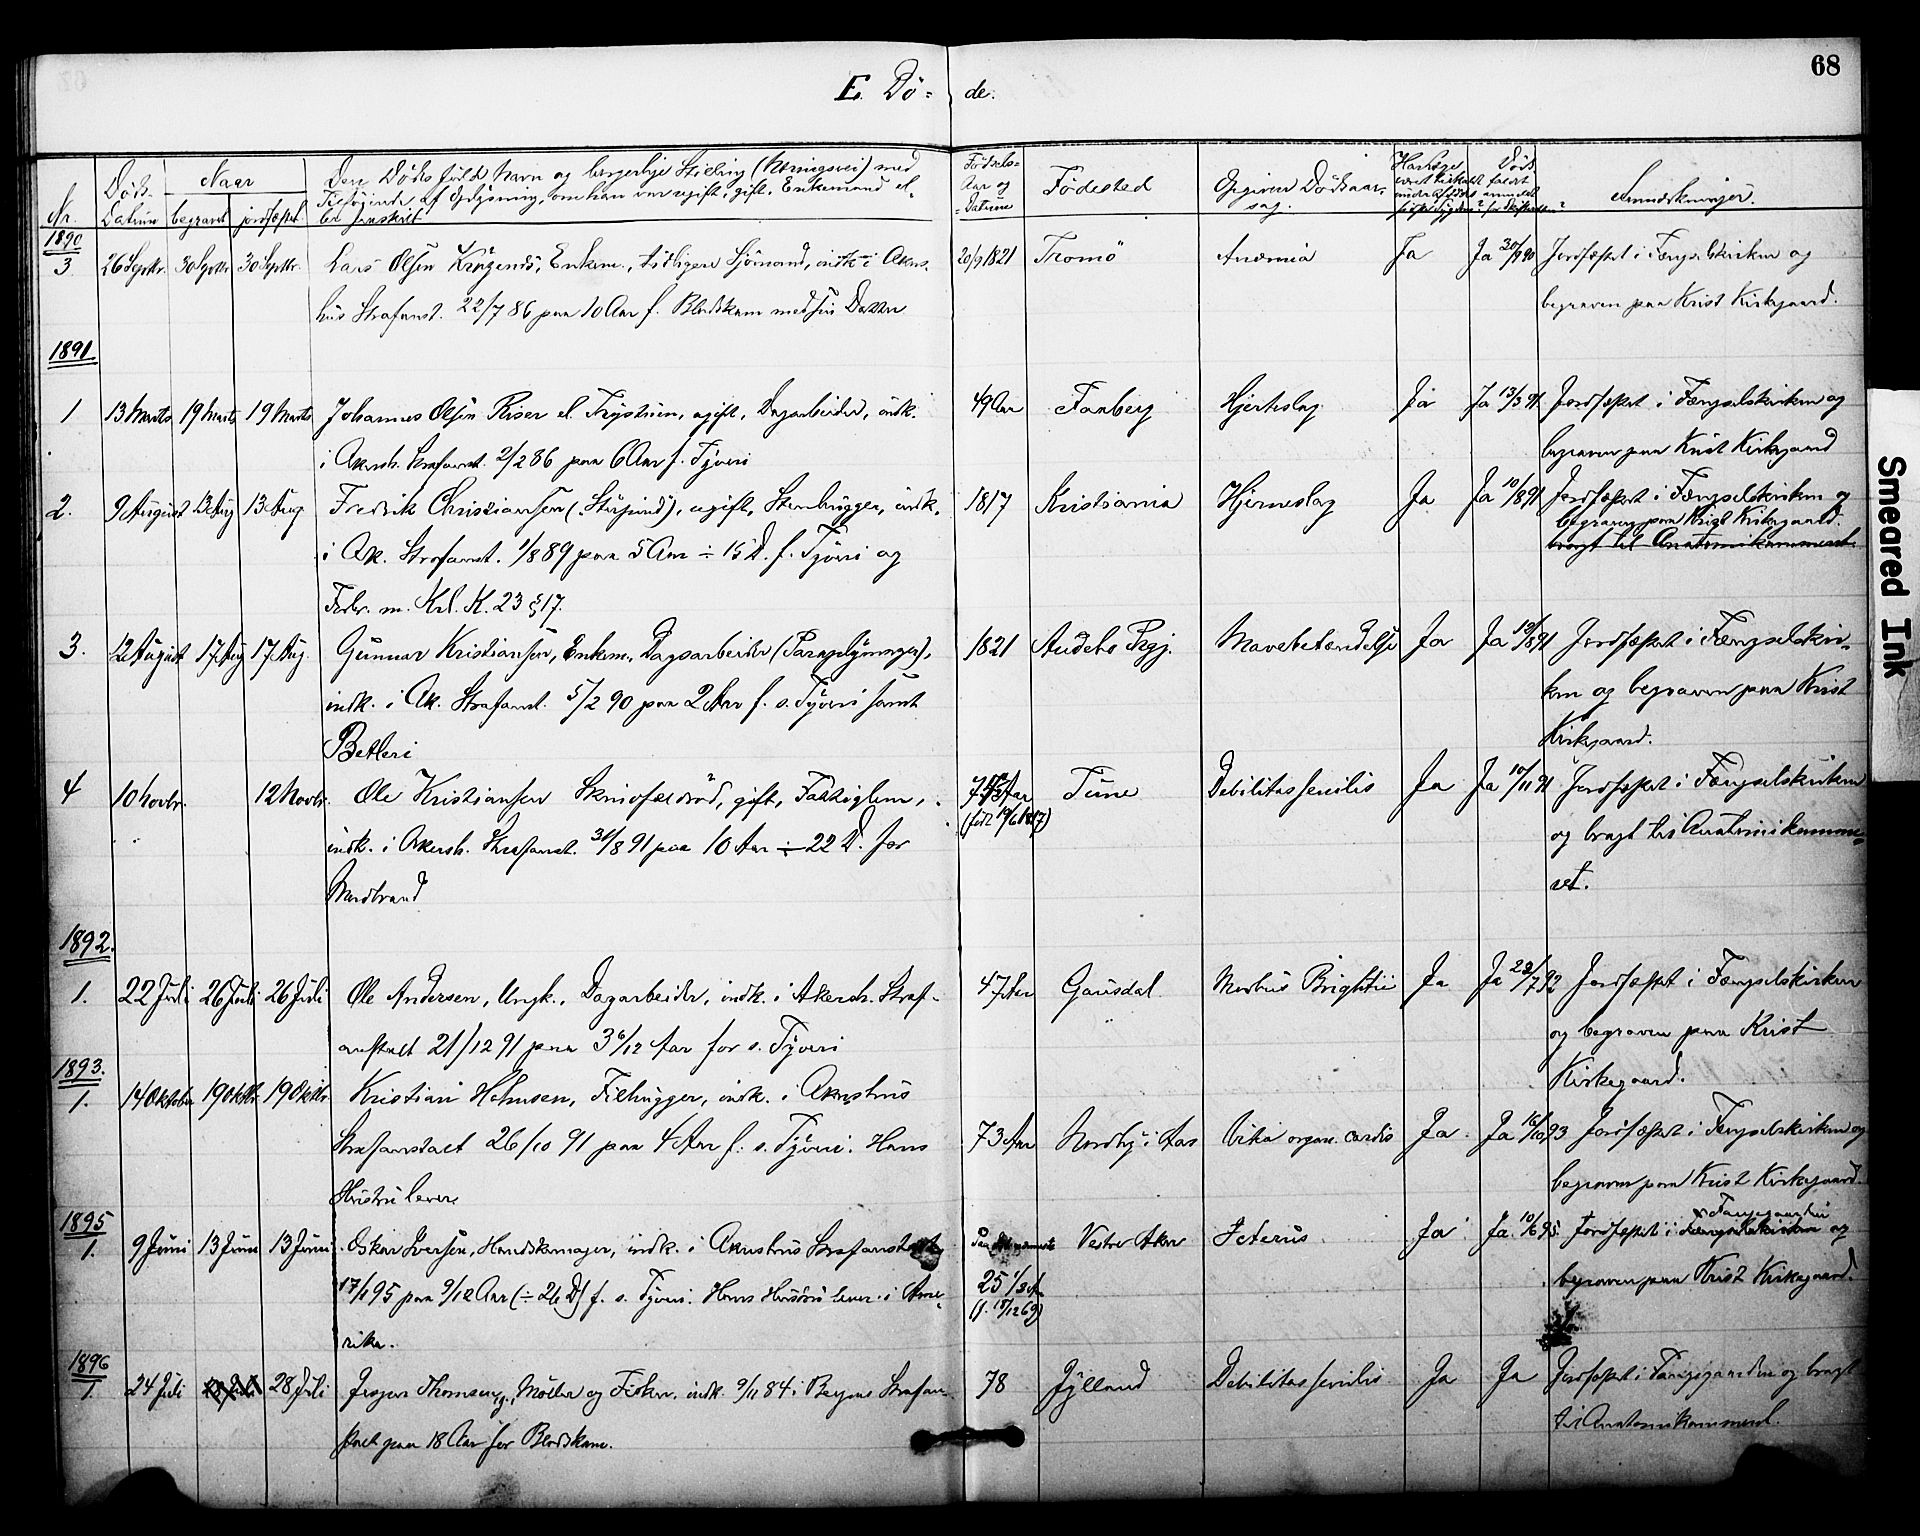 68
E. Dö= de.
Nr.
Döds-
Datum
Naar
begravet
jordfæstet
Den Dödes fulde Navn og borgerlige Stilling (Næringsvei) med
Tilföiende af Oplysning, om han var ugift, gift, Enkemand el-
ler fraskilt
Fødsels-
Aar og
Datum
Födested
Opgiven Dödsaar-
sag.
Anmærkninger.
1890
3 26 Septbr. 30 Septbr 30 Septbr. Lars Olsen Krögenes, Enkem., tidligere Sjömand, indk. i Akers- 20/9 1821 Tromö Anæmia Ja Ja 30/9 90 Jordfæstet i Fængselskirken og
hus Strafanst. 22/7 86 paa 10 Aar f. Blodskam med sin Datter begraven paa Krist Kirkegaard.
1891.
1 13 Marts 19 Marts 19 Marts Johannes Olsen Riser el. Trystuen, ugift, Dagarbeider, indk. 49 Aar Faaberg Hjerteslag Ja Ja 13/3 91 Jordfæstet i Fængselskirken og
i Akersh. Strafanst. 2/2 86 paa 6 Aar f. Tyveri begraven paa Krist Kirkegaard
2. 9 August 13 Aug 13 Aug Fredrik Christiansen (Stupind), ugift, Stenhugger, indk. 1817 Kristiania Hjerneslag Ja Ja 10/8 91 Jordfæstet i Fængselskirken og
begraven paa Krist Kirkegaard.
i Ak. Strafanst. 1/8 89 paa 5 Aar ÷ 15 D. f. Tyveri og bragt til Anatomikammeret.
Forbr. m. Krl. K. 23 § 17.
3. 12 August 17 Aug 17 Aug. Gunnar Kristiansen, Enkem., Dagsarbeider (Paraplymager), 1821 Audebo Prgj. Mavebetændelse Ja Ja 13/8 91 Jordfæstet i Fængselskir-
indk. i Ak. Strafanst. 5/2 90 paa 2 Aar f. s. Tyveri samt ken og begraven paa Krist
Betleri Kirkegaard.
4 10 Novbr. 12 Novbr. Ole Kristiansen Skinofældröd, gift, Fattiglem, Aar Tune Debilitas senilis Ja Ja 10/11 91 Jordfæstet i Fængselskirken
indk. i Akersh. Strafanst. 31/8 91 paa 10 Aar ÷ 22 D. for og bragt til Anatomikamme-
Mordbrand ret.
1892.
1. 22 Juli 26 Juli 26 Juli Ole Andersen, Ungk., Dagarbeider, indk. i Akersh. Straf- 47 Aar Gausdal Morbus Brightii Ja Ja 23/7 92 Jordfæstet i Fængselskirken
anstalt 21/12 91 paa 3 6/12 Aar for s. Tyveri og begraven paa Krist
Kirkegaard.
1893.
1. 14 Oktober 19 Oktbr. 19 Oktbr. Kristian Holmsen, Filehugger, indk. i Akershus
Strafanstalt 26/10 91 paa 4 Aar f. s. Tyveri. Hans 73 Aar Nordby i Aas Vitia organ. cordis Ja Ja 16/10 93 Jordfæstet i Fængselskirken og
Hustru lever begraven paa Krist Kirkegaard.
1895
1. 9 Juni 13 Juni 13 Juni Oskar Iversen, Handskemager, indk. i Akershus Strafanstalt Vestre Aker Icterus Ja Ja 10/6 95. Jordfæstet i Fangegaarden og
17/1 95 paa 9/12 Aar (÷ 26 D) f. s. Tyveri. Hans Hustru lever i Ame- 25 1/2 A. (f. 18/12 69) begraven paa Krist Kirkegaard.
rika.
1896
1. 24 Juli 28 Juli Jesper Thomsen, g., Möller og Fisker, indk. 9/11 84 i Bergens Strafan- 78 Jylland Debilitas senilis Ja Ja Jordfæstet i Fangegaarden og bragt
stalt paa 18 Aar for Blodskam. til Anatomikammeret.
Smeared Ink